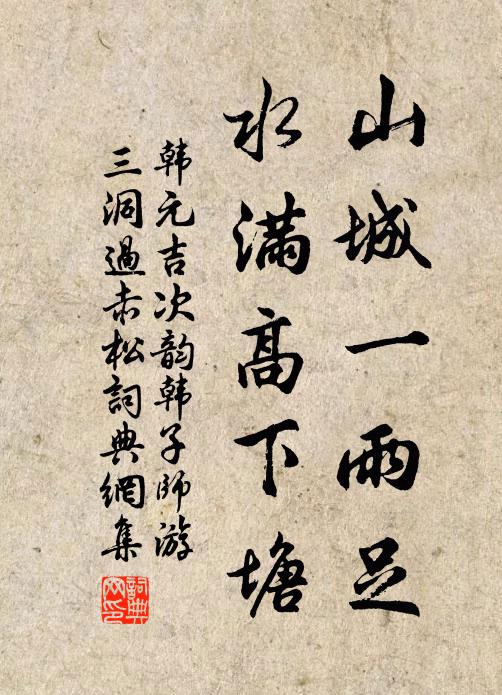 山城一雨足
水满高下塘
韩元吉次韵韩子师游
三洞過赤松詞典網集
詞典网印